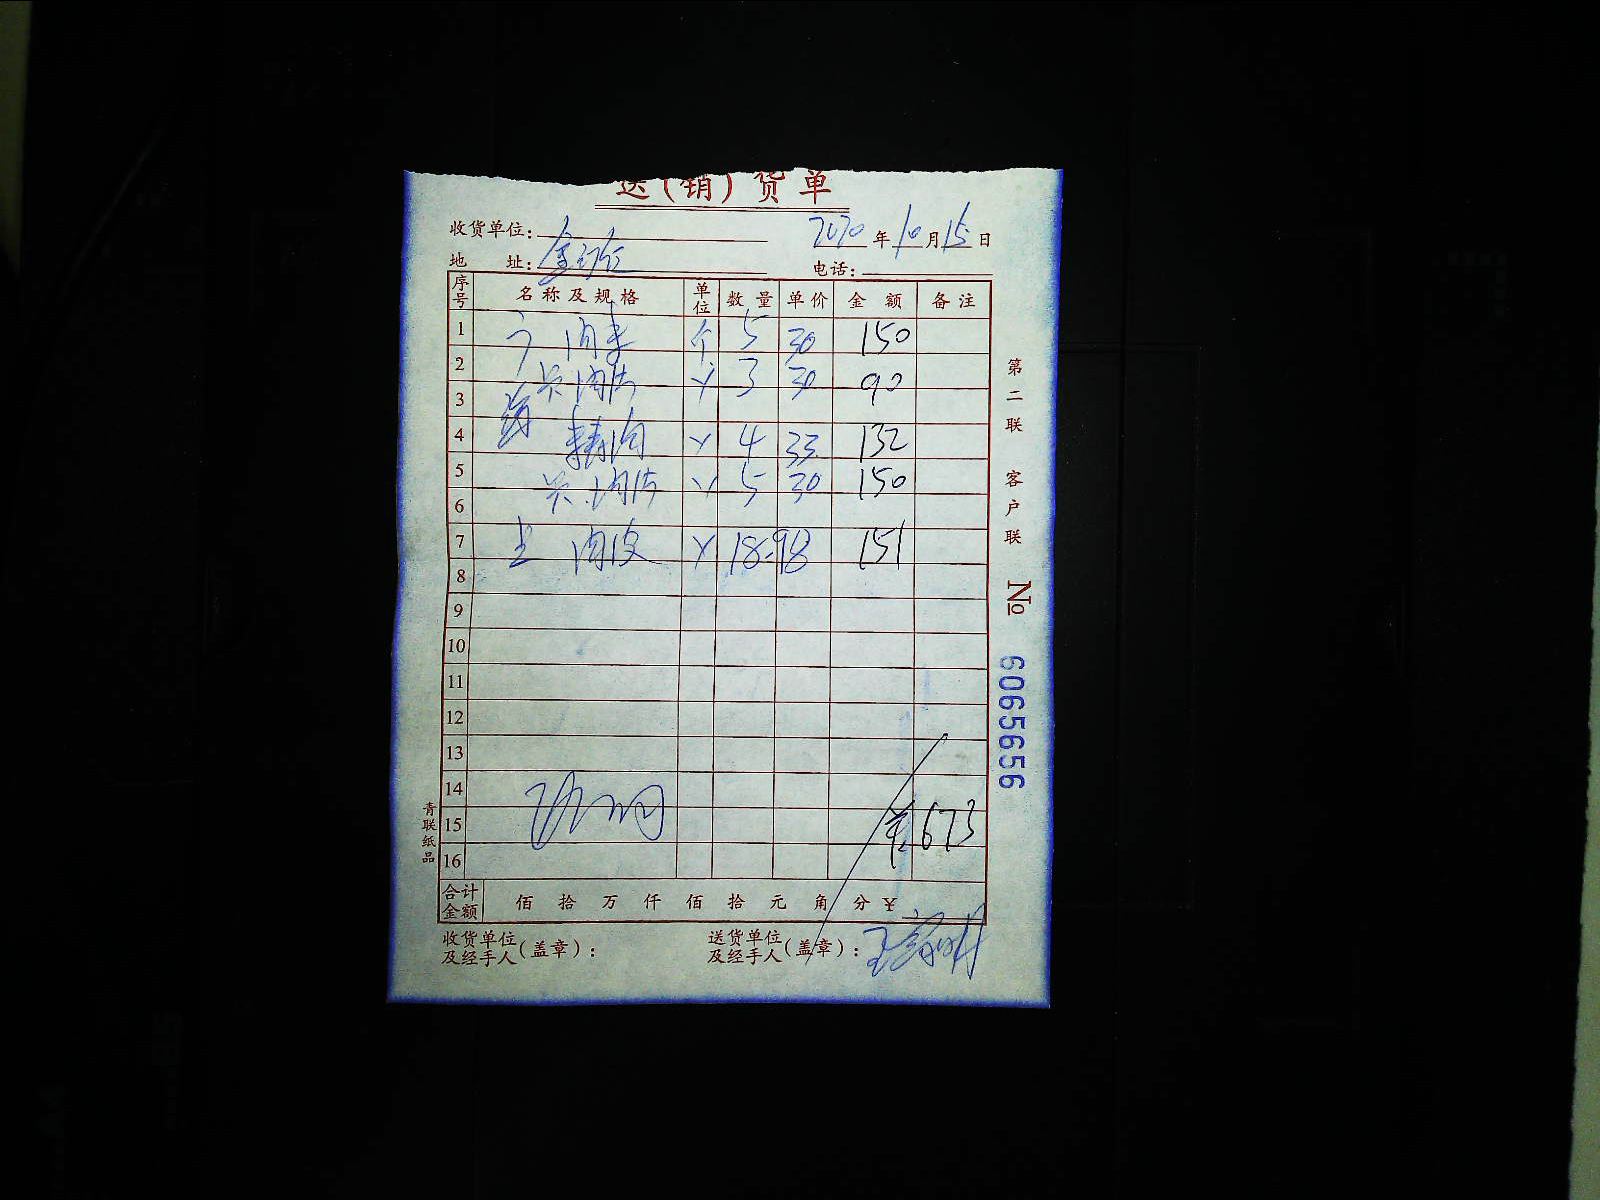 送(销)货单
收货单位: 2020年10月15日
地 址: 电话:
序号 名称及规格 单位 数量 单价 金额 备注
1 肉末 个 5 30 150
2 肉片 3 30 90
3
4 精肉 4 33 132
5 肉片 5 30 150
6
7 肉皮 18.98 151
8
9
10
11
12
13
14
15 673
16
合计金额 佰 拾 万 仟 佰 拾 元 角 分 ¥
收货单位及经手人(盖章): 送货单位及经手人(盖章):
第二联 客户联
№ 6065656
青联纸品